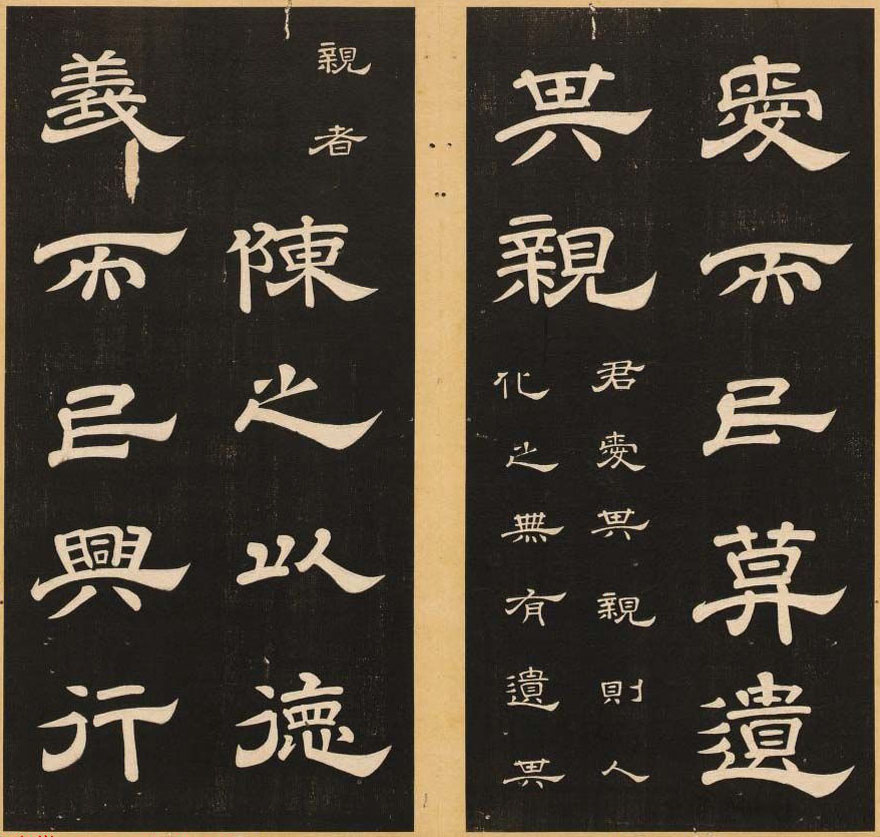 愛而民莫遺
其親
君愛其親則人
化之無有遺其
親者
陳之以德
義而民興行